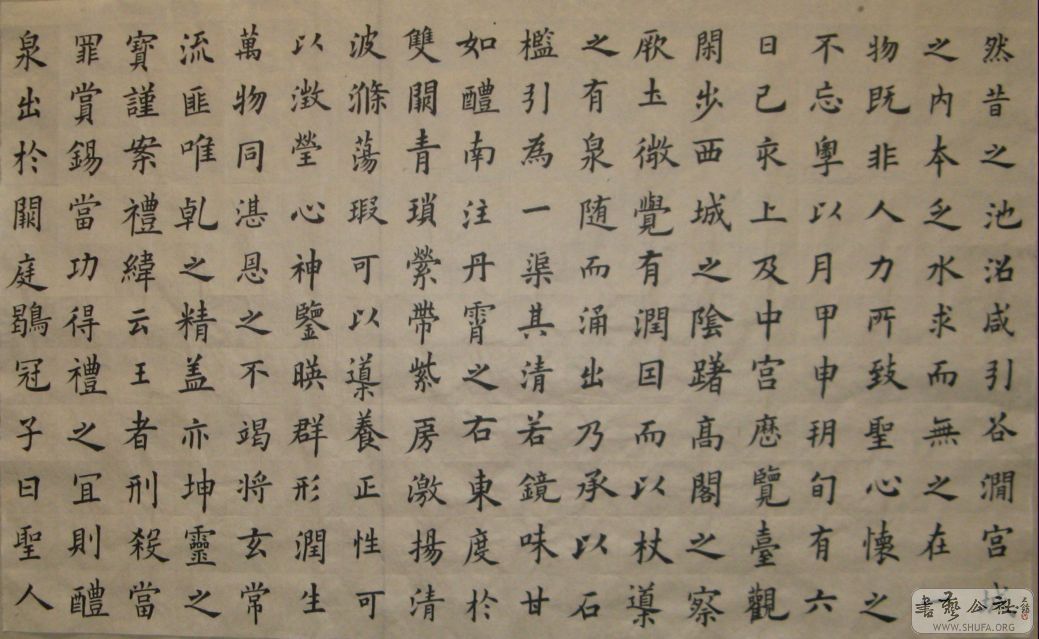 然昔之池沼咸引谷澗宮城
之内本乏水求而無之在
物既非人力所致聖心懷之
不忘粵以月甲申玥旬有六
日己亥上及中宮歷覽臺觀
閑步西城之陰躇高閣之察
厥土微覺有潤因而以杖導
之有泉随而涌出乃承以石
檻引為一渠其清若鏡味甘
如醴南注丹霄之右東度於
雙闕青瑣縈帶紫房激揚清
波滌蕩瑕可以導養正性可
以澂瑩心神鑒暎群形潤生
萬物同湛恩之不竭將玄常
流匪唯乾之精盖亦坤靈之
寶謹案禮緯云王者刑殺當
罪賞錫當功得禮之宜則醴
泉出於闕庭鶡冠子曰聖人
書藝公社
WWW.SHUFA.ORG